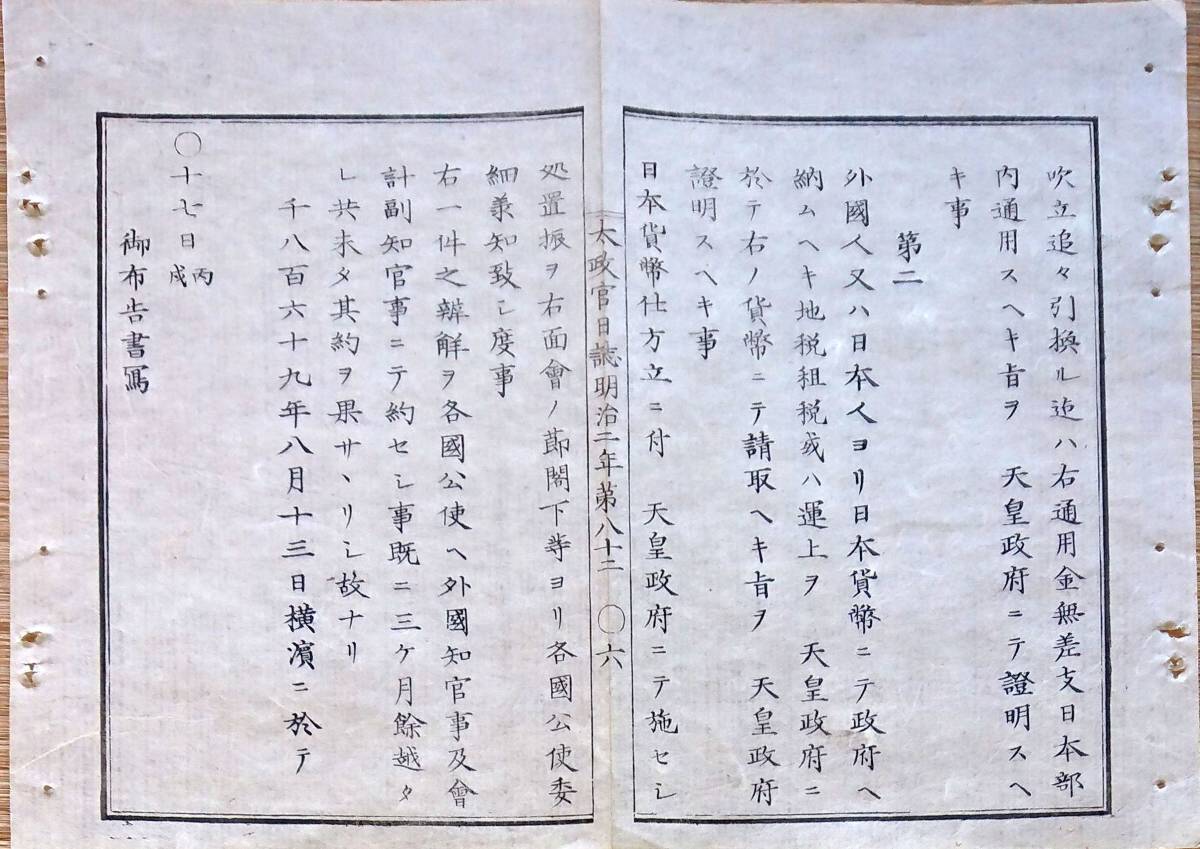 吹立追々引換ル迠ハ右通用金無差支日本部
内通用スヘキ旨ヲ　天皇政府ニテ證明スヘ
キ事
第二
外國人又ハ日本人ヨリ日本貨幣ニテ政府ヘ
納ムヘキ地税租税或ハ運上ヲ　天皇政府ニ
於テ右ノ貨幣ニテ請取ヘキ旨ヲ　天皇政府
證明スヘキ事
日本貨幣仕方立ニ付　天皇政府ニテ施セシ
太政官日誌明治二年第八十二　〇六
処置振ヲ右面會ノ節閣下等ヨリ各國公使委
細義知致シ度事
右一件之辨解ヲ各國公使ヘ外國知官事及會
計副知官事ニテ約セシ事既ニ三ケ月餘越タ
レ共未タ其約ヲ果サヽリシ故ナリ
千八百六十九年八月十三日横濱ニ於テ
〇十七日丙戌
御布告書寫